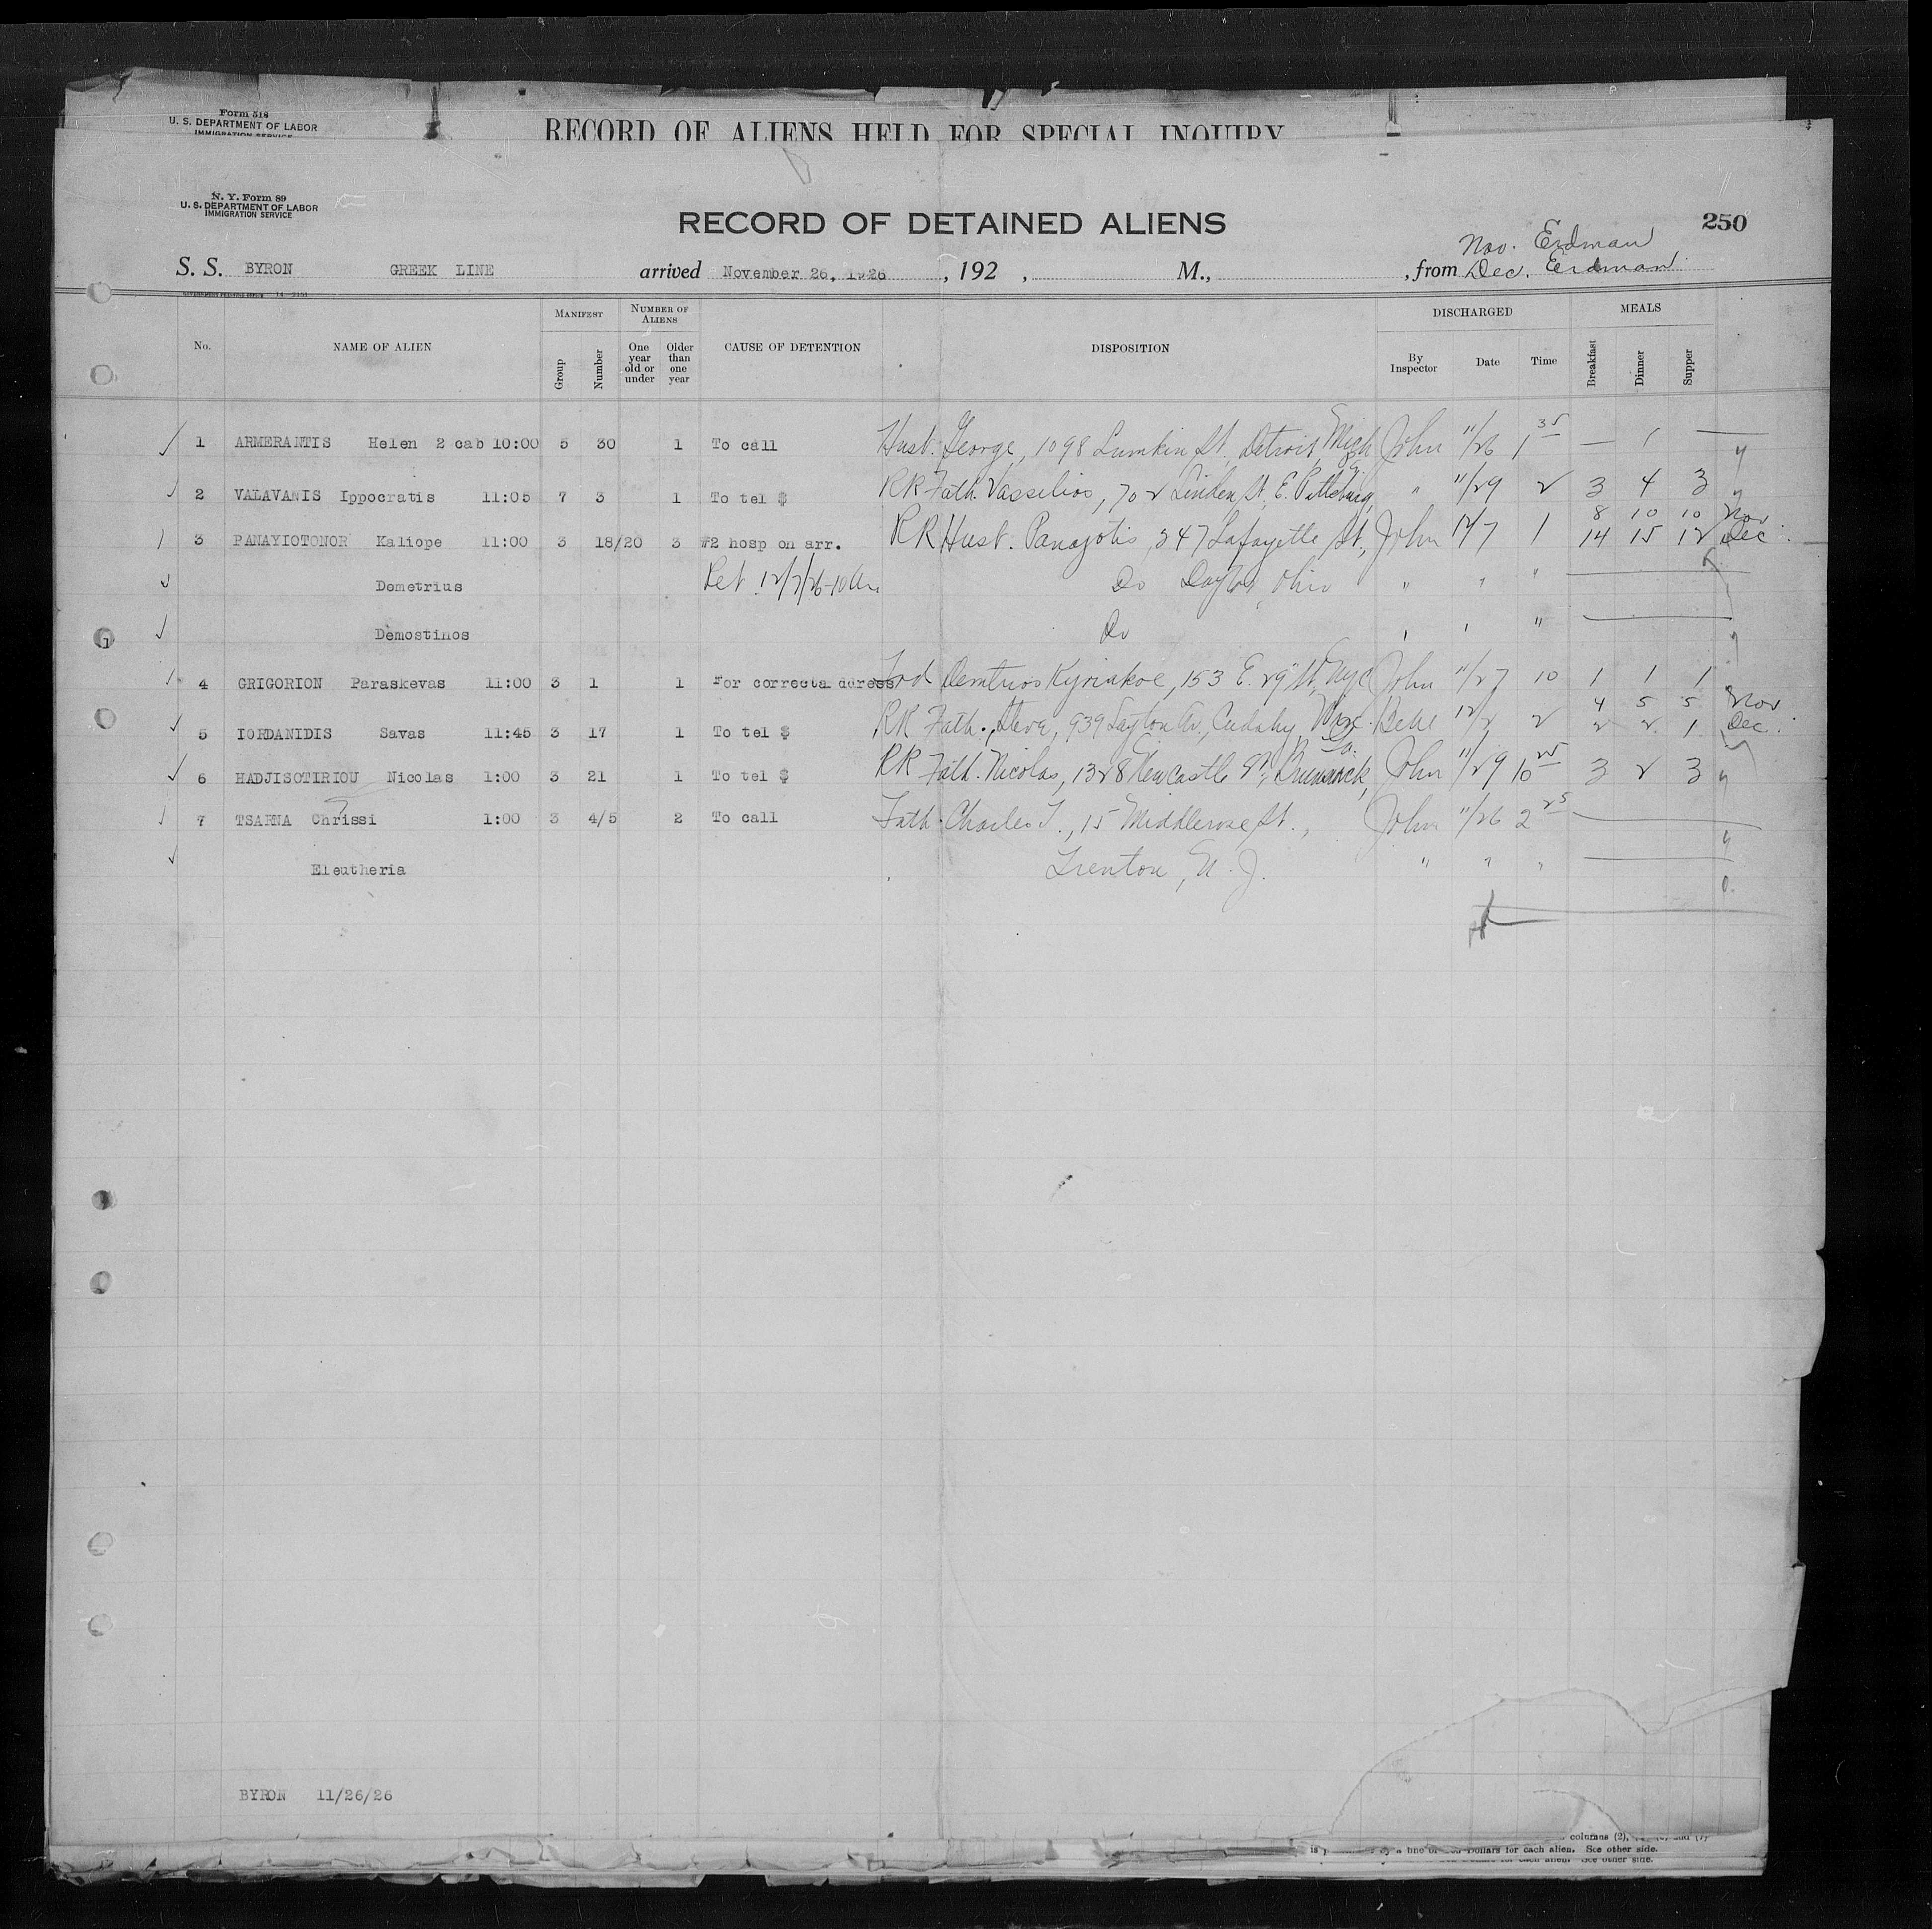 Form 518
U. S. DEPARTMENT OF LABOR
IMMIGRATION SERVICE
RECORD OF ALIENS HELD FOR SPECIAL INQUIRY
N. Y. Form 89
U. S. DEPARTMENT OF LABOR
IMMIGRATION SERVICE
RECORD OF DETAINED ALIENS
250
Nov. Erdman
S. S. BYRON GREEK LINE arrived November 26, 1926 , 192 , M., , from Dec. Erdman
MANIFEST NUMBER OF ALIENS DISCHARGED MEALS
No. NAME OF ALIEN Group Number One year old or under Older than one year CAUSE OF DETENTION DISPOSITION By Inspector Date Time Breakfast Dinner Supper
1 ARMERANTIS Helen 2 cab 10:00 5 30 1 To call Husb. George, 1098 Lumkin St., Detroit, Mich John 11/26 1 35 — 1 —
2 VALAVANIS Ippocratis 11:05 7 3 1 To tel $ RR Fath. Vassilios, 702 Linden St, E. Pittsburg, " 11/29 2 3 4 3
8 10 10 Nov
3 PANAYIOTONOR Kaliope 11:00 3 18/20 3 #2 hosp on arr. RR Husb. Panajotis, 347 Lafayette St., John 12/7 1 14 15 12 Dec.
Demetrius Ret 12/7/26-10 Am. Do Dayton, Ohio " " "
Demostinos Do " " "
4 GRIGORION Paraskevas 11:00 3 1 1 For correcta ddress Demtrios 153 E. 29" St, NYC John 11/27 10 1 1 1
4 5 5 Nov
5 IORDANIDIS Savas 11:45 3 17 1 To tel $ RR Fath. Steve, 939 Layton Av., Cudahy, Wisc. 12/2 2 2 2 1 Dec.
6 HADJISOTIRIOU Nicolas 1:00 3 21 1 To tel $ RR Fath. Nicolas, 1328 Newcastle St., Brunswick, Ga. John 11/29 10 25 3 2 3
7 TSARNA Chrissi 1:00 3 4/5 2 To call Fath. Charles T., 15 Middlerose St., John 11/26 2 25
Eleutheria Trenton, N. J. " " "
BYRON 11/26/26
columns (2),
Dollars for each alien. See other side.
for each alien. See other side.